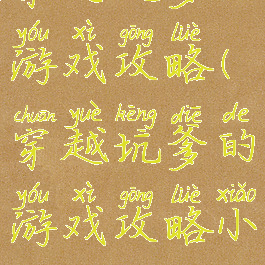 yóu xì gōng lüè
游戏攻略(
chuān yuè kēng diē de
穿越坑爹的
yóu xì gōng lüè xiǎo
游戏攻略小